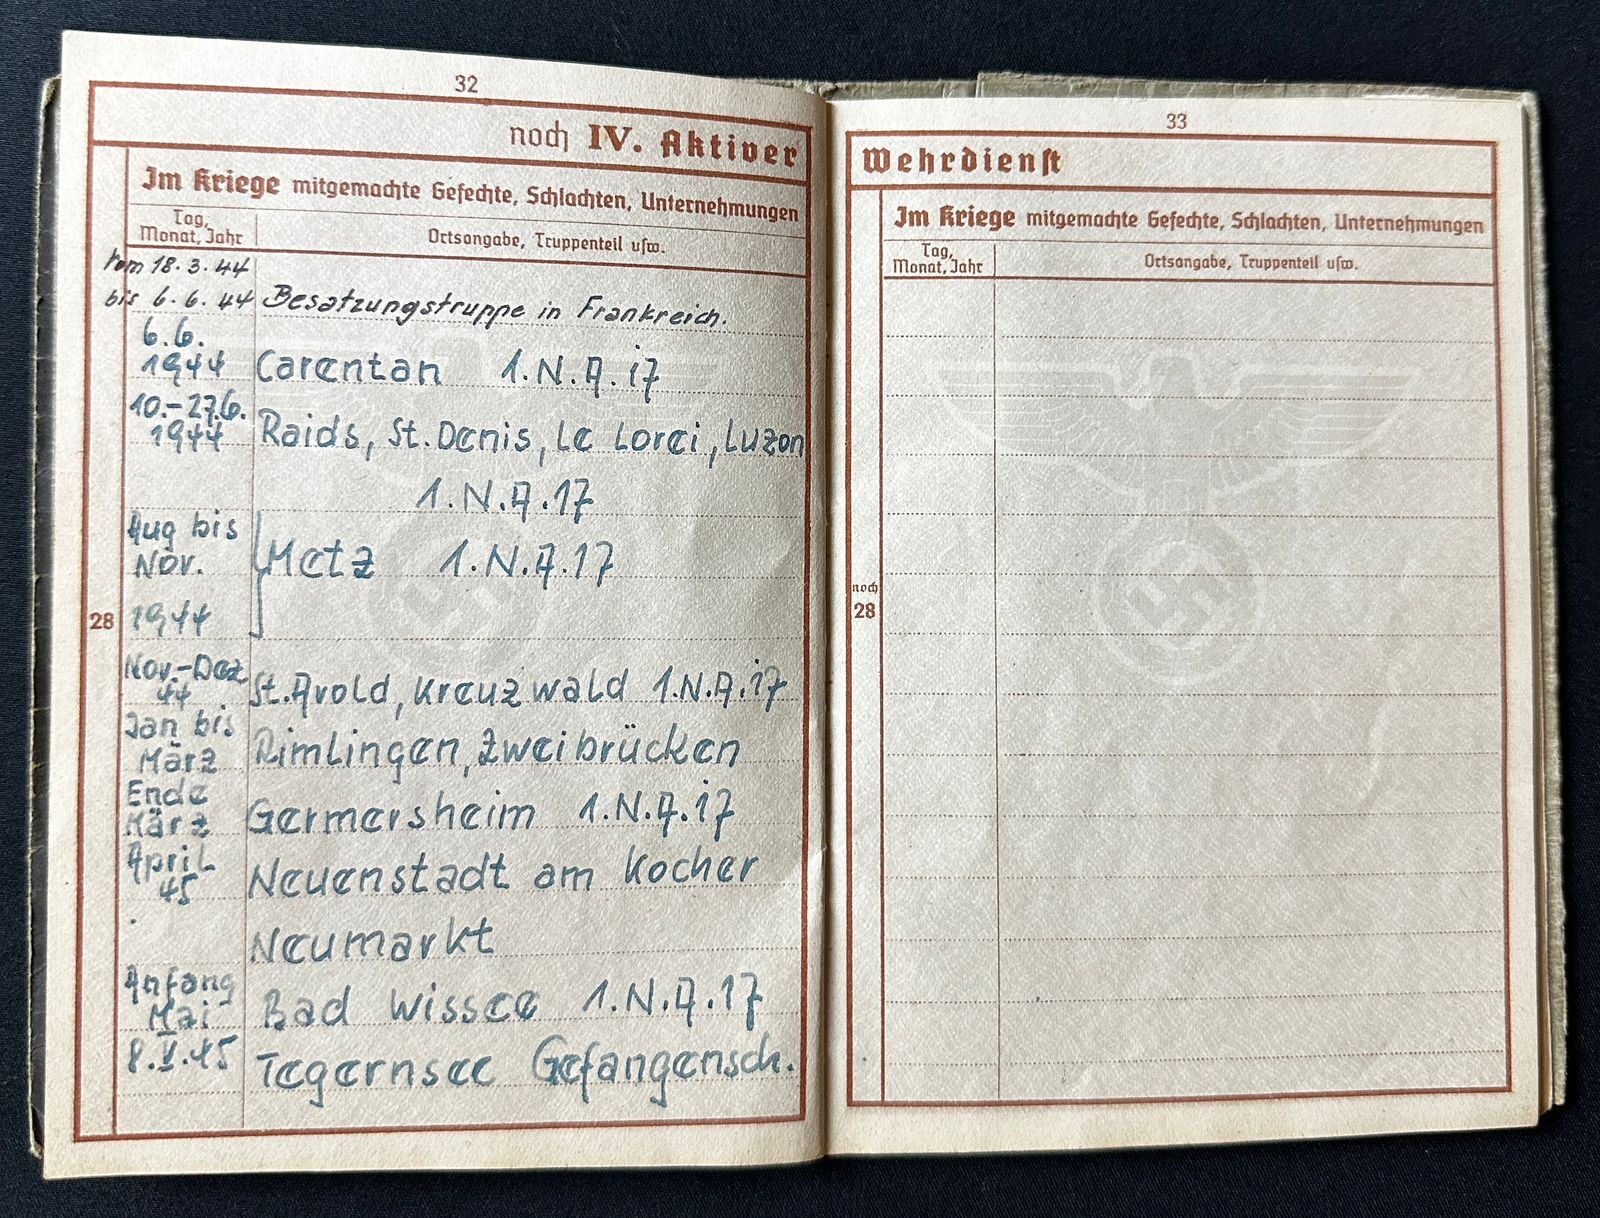 32
noch IV. Aktiver
Im Kriege mitgemachte Gefechte, Schlachten, Unternehmungen
Tag, Monat, Jahr
Ortsangabe, Truppenteil usw.
vom 18.3.44
bis 6.6.44 Besatzungstruppe in Frankreich.
6.6.
1944 Carentan 1.N.A.17
10.-27.6.
1944 Raids, St.Denis, Le Lorei, Luzon
1.N.A.17
Aug bis
Nov. Metz 1.N.A.17
28 1944
Nov.-Dez
44 St.Avold, Kreuzwald 1.N.A.17
Jan bis
März Rimlingen, Zweibrücken
Ende
März Germersheim 1.N.A.17
April
45 Neuenstadt am Kocher
Neumarkt
Anfang
Mai Bad Wissee 1.N.A.17
8.V.45 Tegernsee Gefangensch.
33
Wehrdienst
Im Kriege mitgemachte Gefechte, Schlachten, Unternehmungen
Tag, Monat, Jahr
Ortsangabe, Truppenteil usw.
noch
28